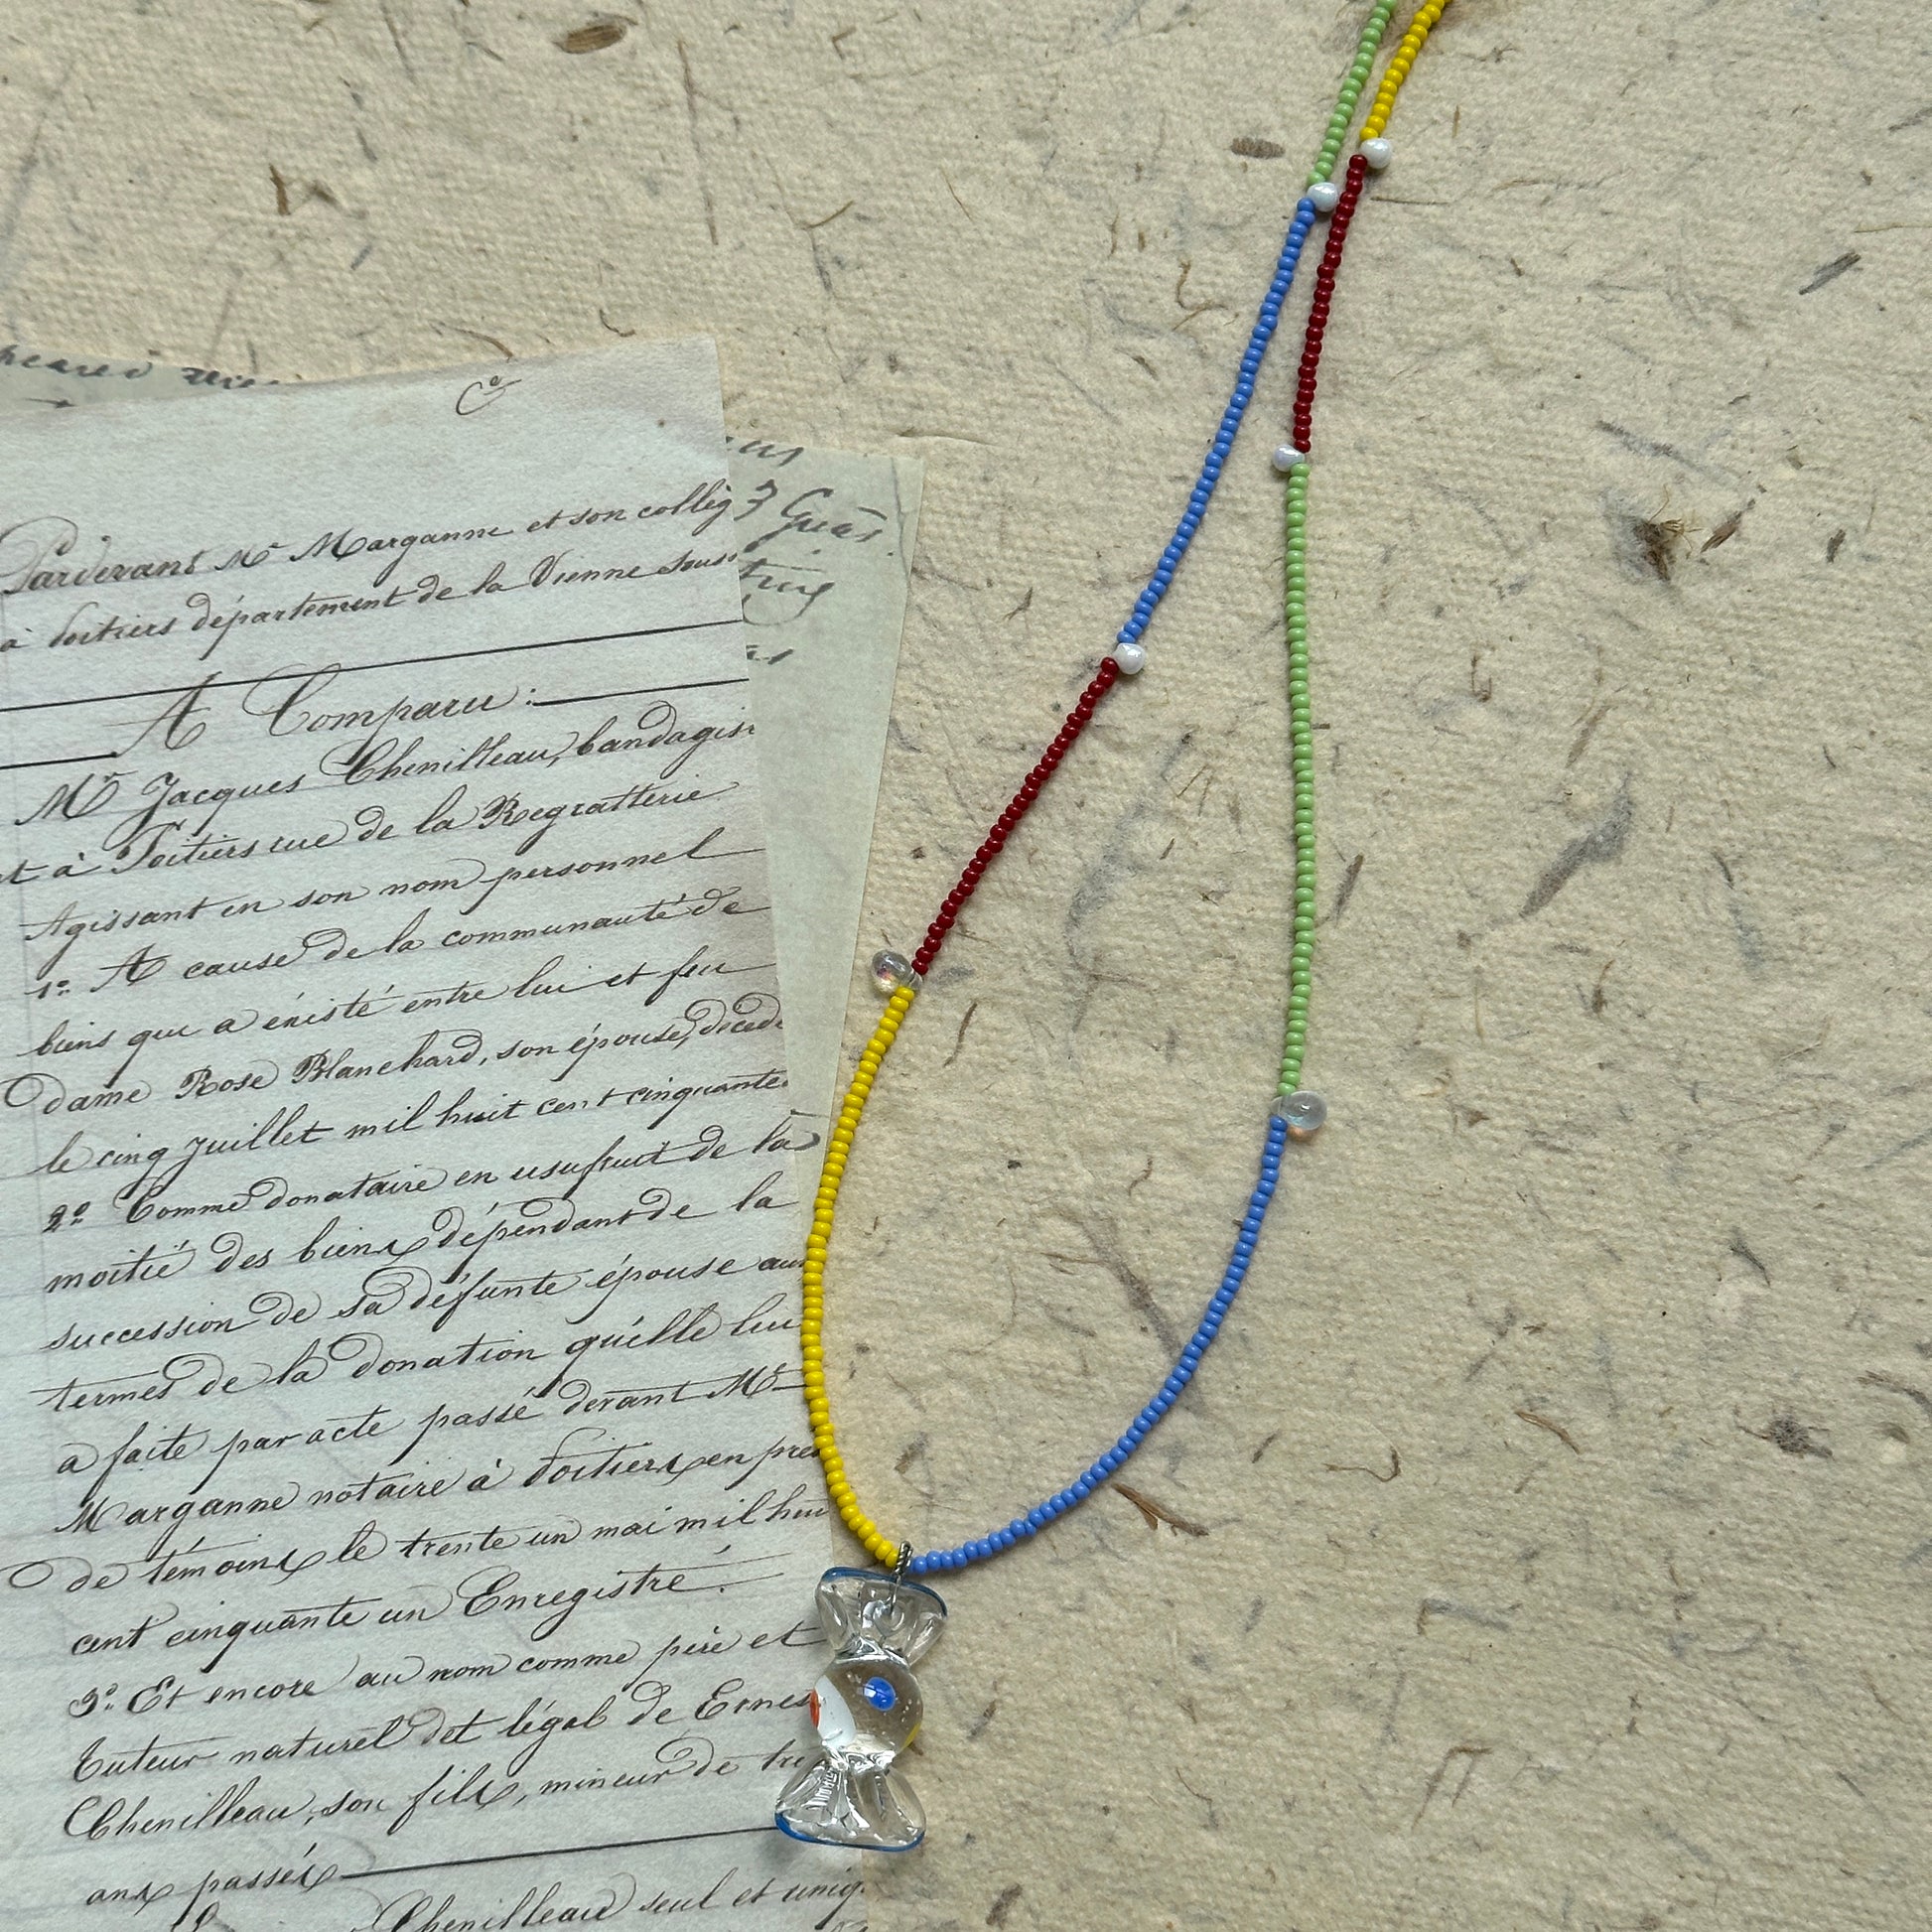 Pardevant Mᵉ Marganne et son collèg
à Poitiers département de la Vienne sous
A Comparu :
Mʳ Jacques Chenilleau, bandagis
t à Poitiers rue de la Regratterie
Agissant en son nom personnel
1º. A cause de la communauté de
biens qui a éxisté entre lui et feu
dame Rose Blanchard, son épouse, décéd
le cinq Juillet mil huit cent cinquante
2º Comme donataire en usufruit de la
moitié des biens dépendant de la
succession de sa défunte épouse aux
termes de la donation qu'elle lui
a faite par acte passé devant Mᵉ
Marganne notaire à Poitiers en pres
de témoins le trente un mai mil hui
cent cinquante un Enregistré.
3º. Et encore au nom comme père et
tuteur naturel et légal de Ernes
Chenilleau, son fils, mineur de tre
ans passés
Chenilleau seul et uniq